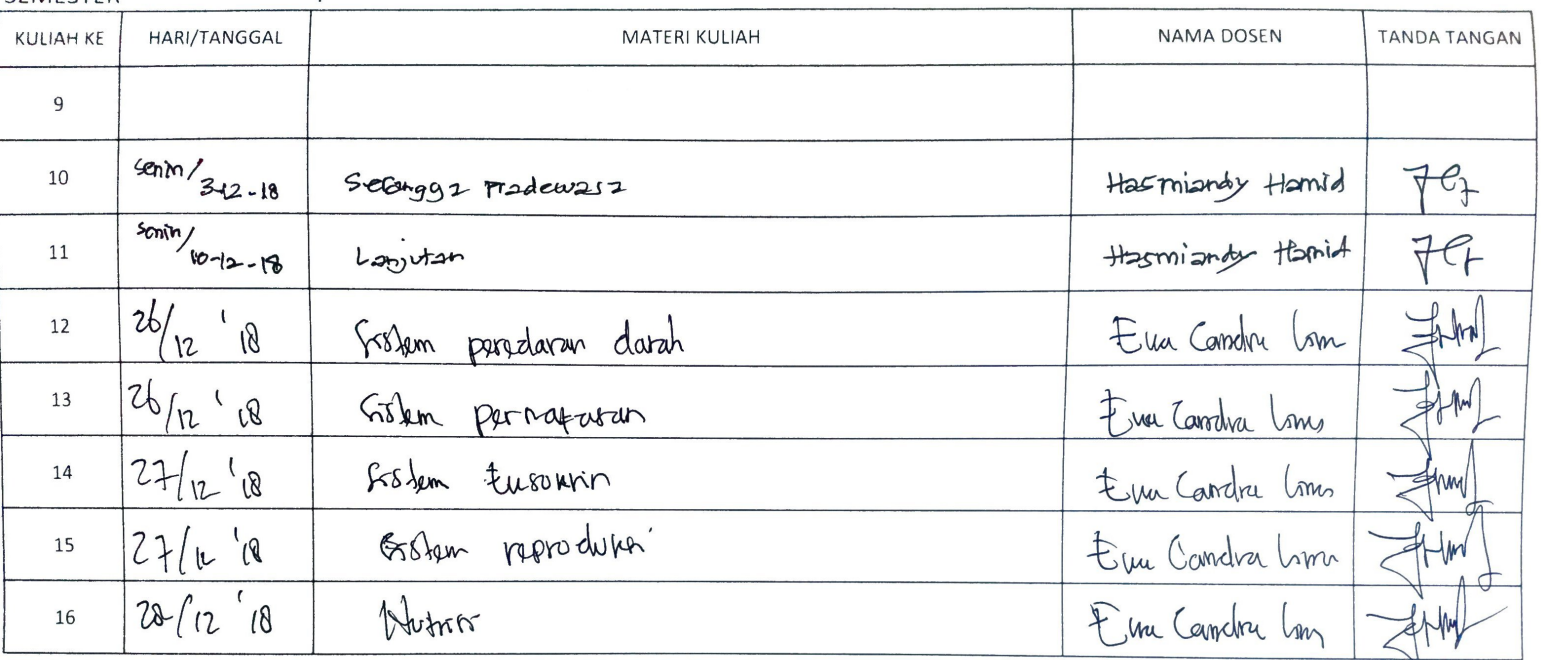 KULIAH KE HARI/TANGGAL MATERI KULIAH NAMA DOSEN TANDA TANGAN
9
10 Senin/ 3-12-18 Serangga Pradewasa Hasmiandy Hamid
11 Senin/ 10-12-18 Lanjutan Hasmiandy Hamid
12 26/12 '18 Sistem peredaran darah Eva Candra
13 26/12 '18 Sistem pernafasan Eva Candra
14 27/12 '18 Sistem Eva Candra
15 27/12 '18 Sistem reproduksi Eva Candra
16 28/12 '18 Nutrisi Eva Candra